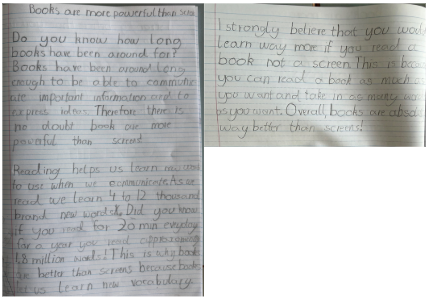 Books are more powerful than scre
Do you know how long
books have been around for?
Books have been around long
enough to be able to communic
ate important information and to
express ideas. Therefore there is
no doubt book are more
powerful than screens
Reading helps us learn new words
to use when we communicate. As we
read we learn 4 to 12 thousand
brand new words. Did you know
if you read for 20 min everyday
for a year you read approximately
1.8 million words! This is why books
are better than screens because books
let us learn new vocabulary.
I strongly believe that you woul
learn way more if you read a
book not a screen. This is beca
you can read a book as much a
you want and take in as many
as you want. Overall, books are abso
way better than screens!